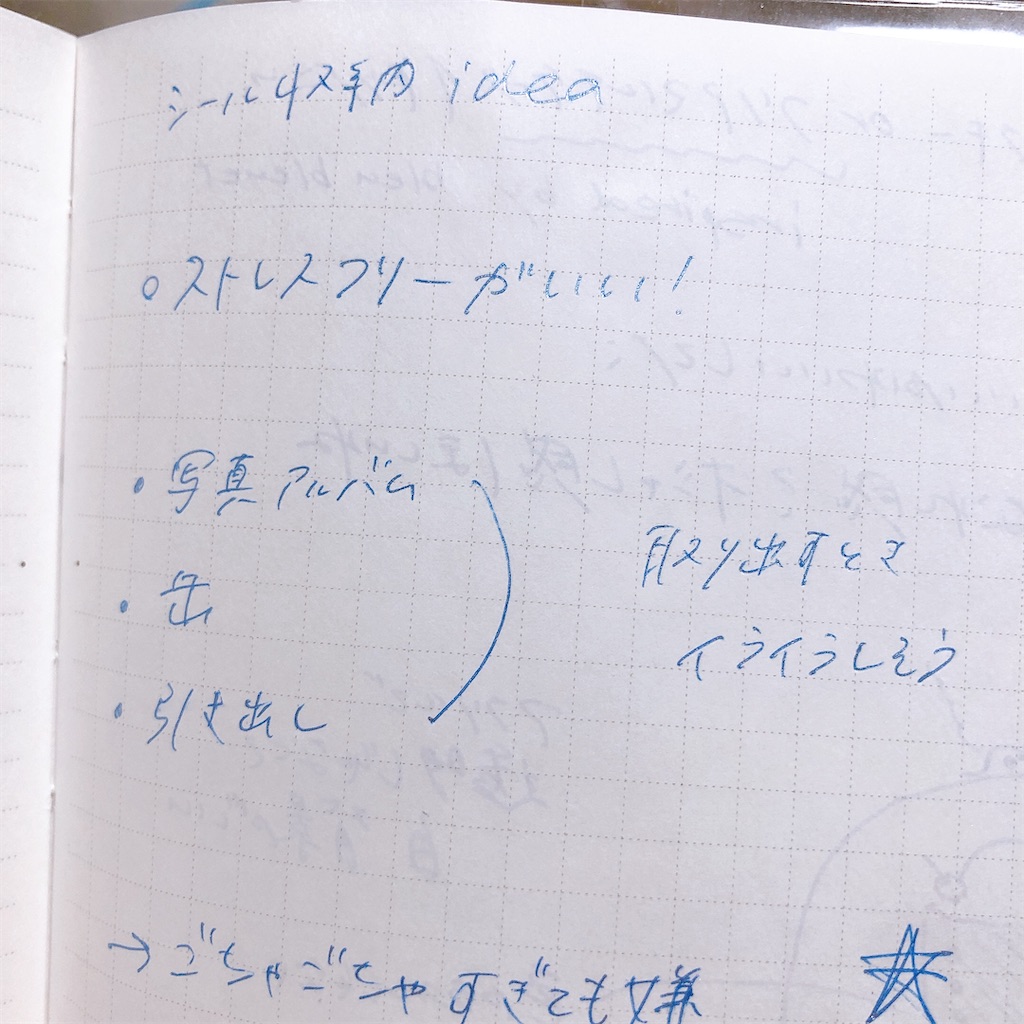 シール収納 idea
○ストレスフリーがいい!
・写真アルバム
・缶
・引き出し
取り出すとき
イライラしそう
→ごちゃごちゃすぎても嫌